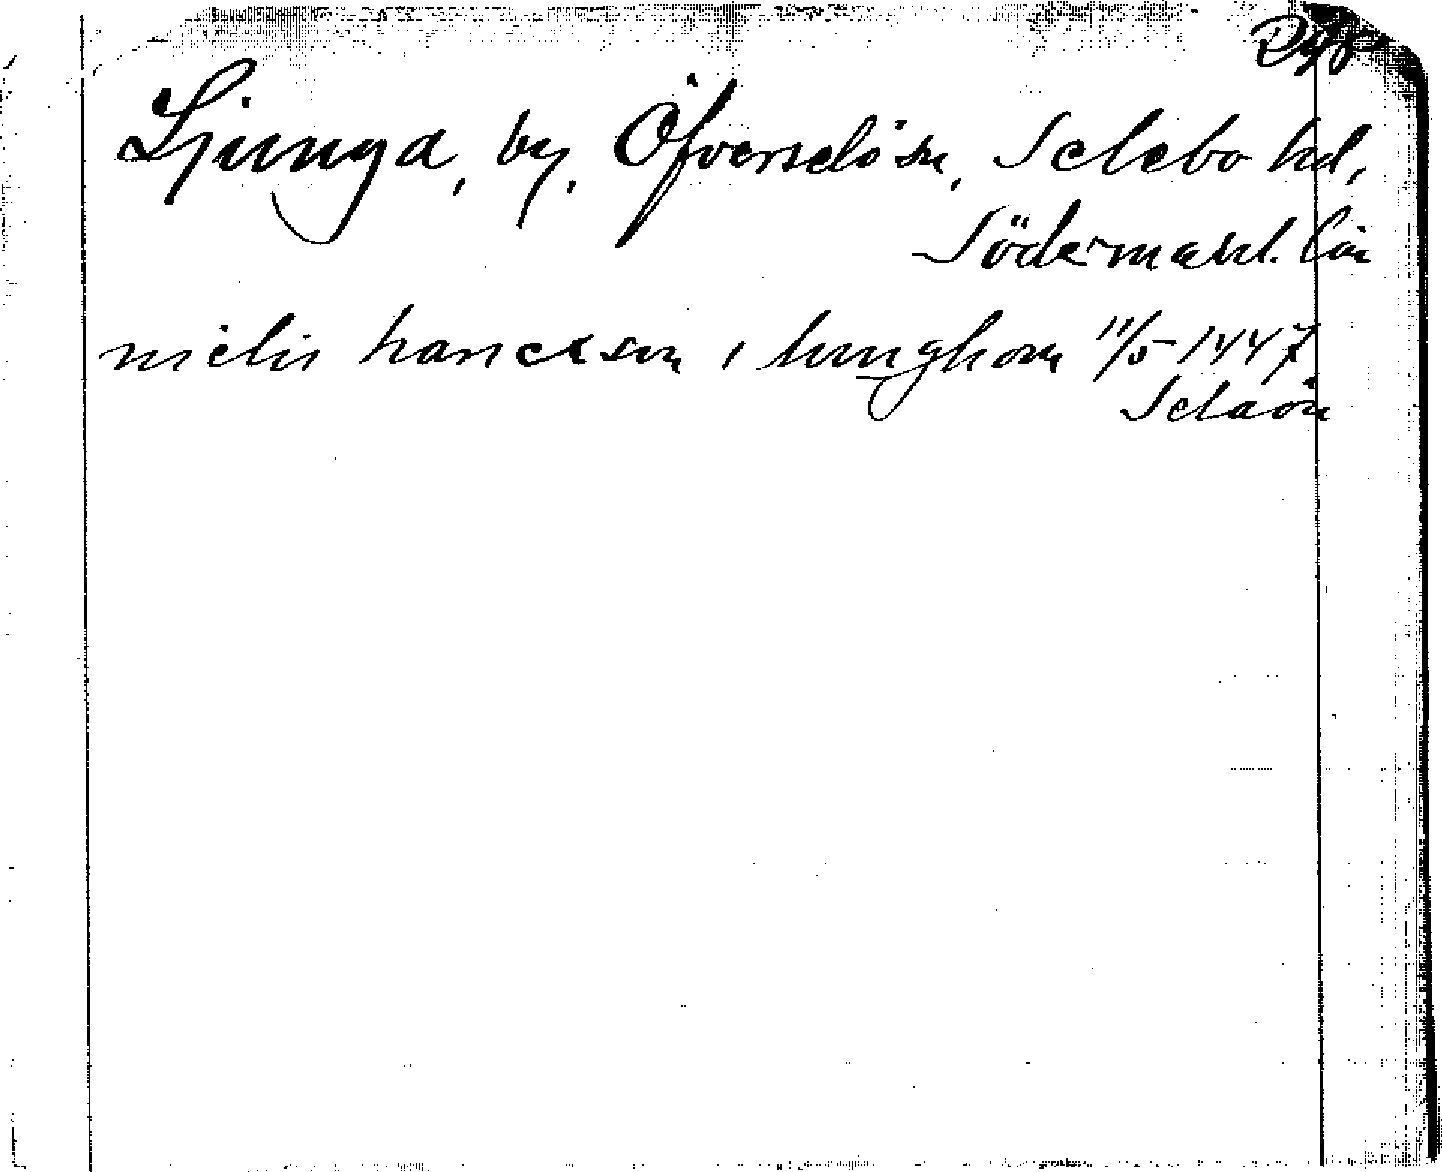 Ds
Ljunga, by, Öfverselö sn, Selebo hd,
Södermanl. län
nielis hanesson i liunghom 11/5 1447
Selaön